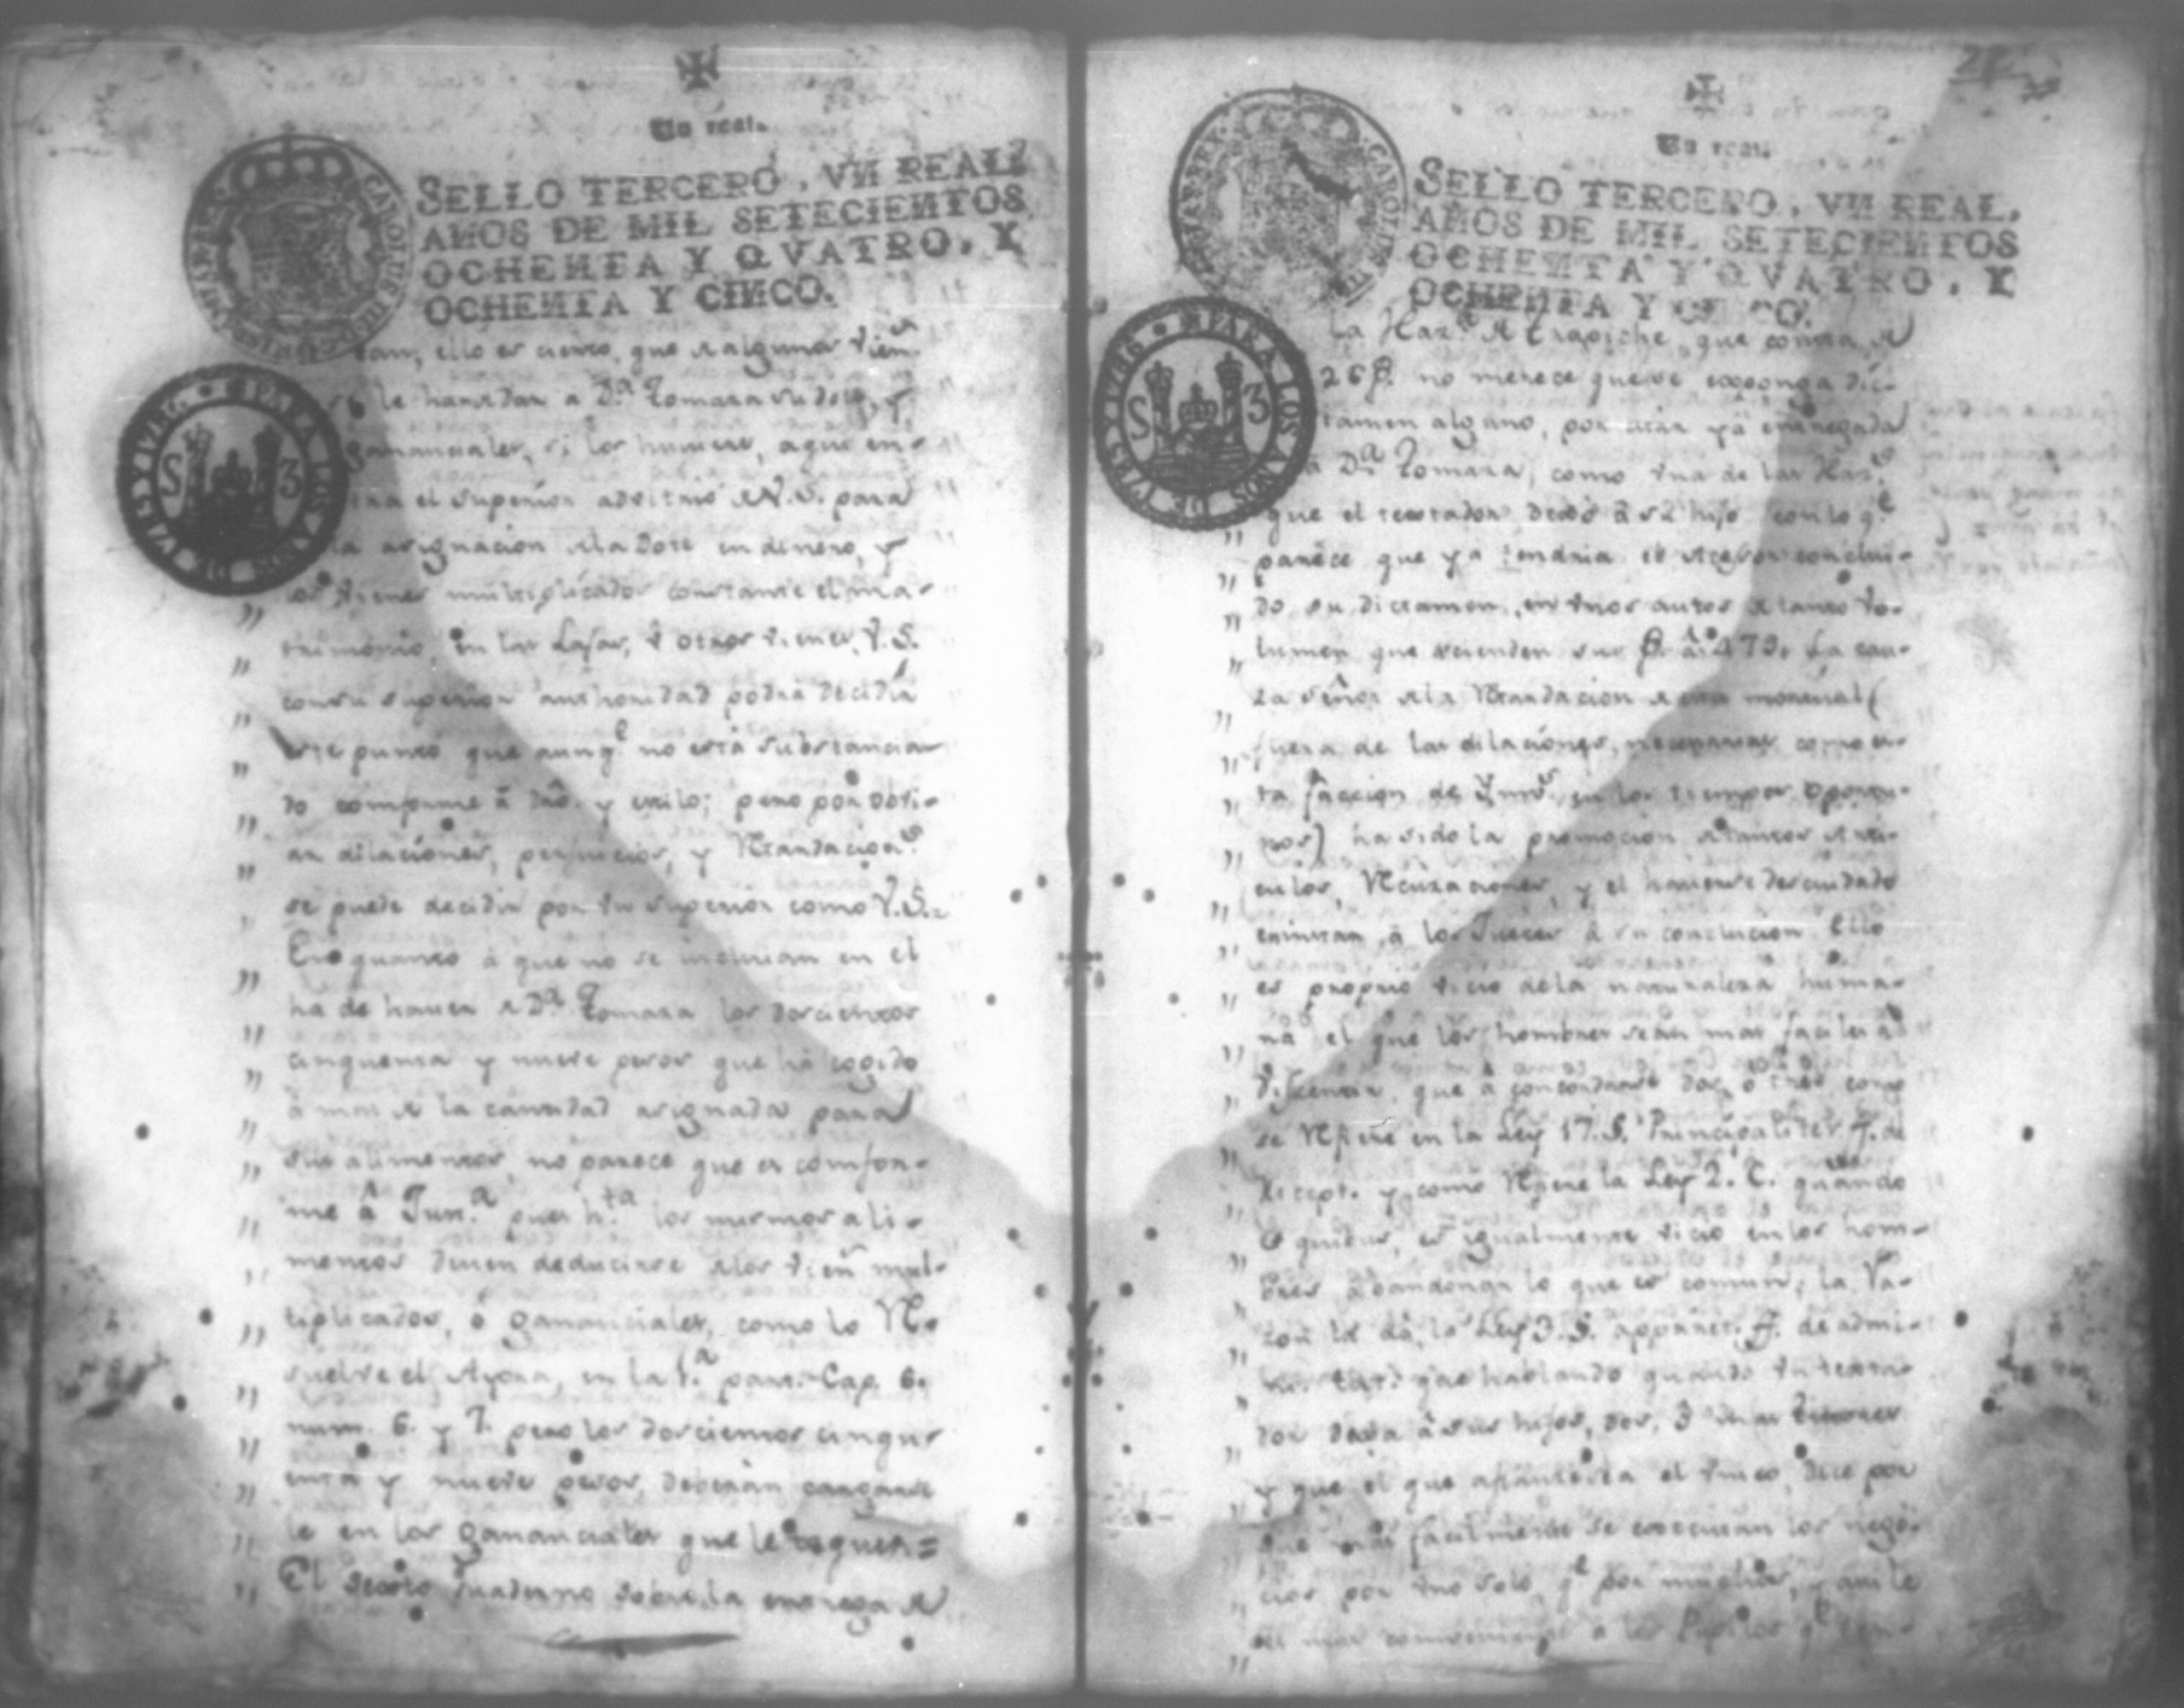 Un real.
SELLO TERCERO, VN REAL,
AÑOS DE MIL SETECIENTOS
OCHENTA Y QVATRO, Y
OCHENTA Y CINCO.
CAROLUS III
PARA LOS AÑOS DE
S 3
ello es cierto, que de algunos vien.s
le han de dar a D.a Tomasa su dote, y
gananciales, si los huviere, aqui en-
tra el superior advitrio de V.S. para
la asignacion de la dote en dinero, y
los vienes multiplicados constante el ma-
trimonio en las Casas, û otros vienes, V.S.
con su superior authoridad podrá decidir
este punto que aunq.e no está substancia-
do conforme â dro. y estilo; pero por obvi-
ar dilaciones, perjuicios, y Retardacion.s
se puede decidir por un superior como V.S.=
En quanto â que no se incluian en el
ha de haver de D.a Tomasa los doscientos
cinquenta y nueve pesos que há cogido
â mas de la cantidad asignada para
sus alimentos, no parece que es confor-
me â Jus.a pues h.ta los mismos ali-
mentos deven deducirse de los vien.s mul-
tiplicados, ô gananciales, como lo Re-
suelve el Ayora, en la 1.a part. Cap. 6.
num. 6. y 7. pero los doscientos cinqu-
enta y nueve pesos, deberán cargarse
le en los gananciales que le toquen=
El sexto quaderno sobre la entrega de
Un real.
SELLO TERCERO, VN REAL,
AÑOS DE MIL SETECIENTOS
OCHENTA Y QVATRO, Y
OCHENTA Y CINCO.
CAROLUS III
PARA LOS AÑOS DE
S 3
la Haz.da de Trapiche, que consta de
26 f. no merece que se exponga dic-
tamen alguno, por estar ya entregada
a D.a Tomasa, como una de las Haz.s
que el testador dexó â su hijo con lo q.e
parece que ya tendria el Asesor conclui-
do su dictamen, en unos autos de tanto vo-
lumen que ascienden sus f. â 479. La cau-
sa Señor de la Retardacion de esta mortual (
fuera de las dilaciones, necesarias, como es-
ta faccion de Ynv.s en los tiempos oportu-
nos) ha sido la promocion de tantos Arti-
culos, Recusaciones, y el haverse descuidado
en instar, â los Jueces â su conclucion. Ello
es proprio vicio de la naturaleza huma-
na el que los hombres sean mas faciles â
disentir, que â concordarse dos, o tres como
se Refiere en la Ley 17. §. Principaliter ff. de
Recept. y como Refiere la Ley 2. C. quando
et quibus, es igualmente vicio en los hom-
bres abandonar lo que es comun; la Ra-
zon la dá, la Ley 3. §. apparet. ff. de admi-
nist. tut. que hablando quando un testa-
dor dexa â sus hijos, dos, ô mas tutores
y que el que administra el unico, dice por
que mas facilmente se executan los nego-
cios por uno solo, q.e por muchos, y assi le
es mas conveniente a los Pupilos q.e